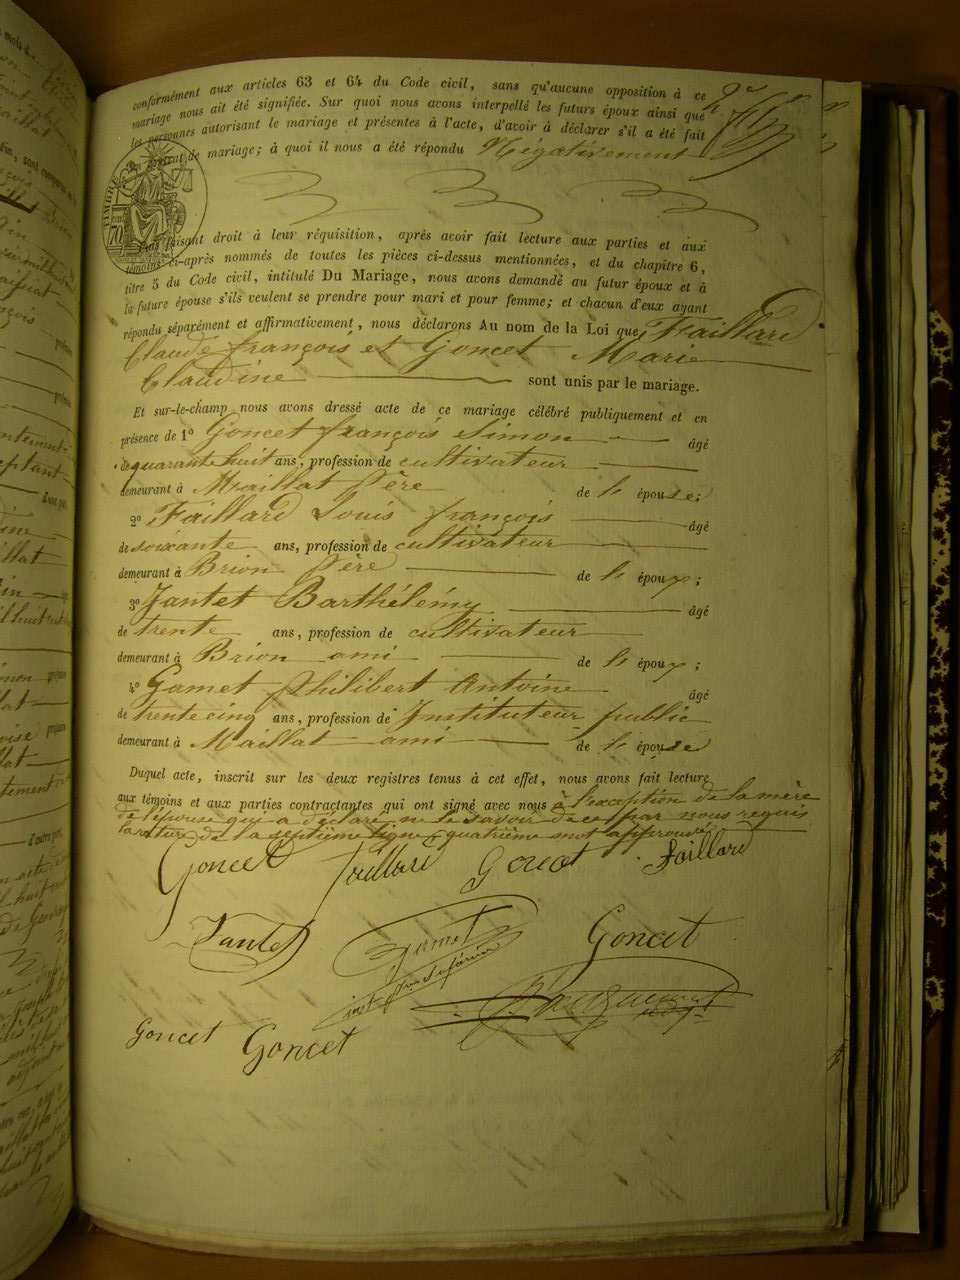 conformément aux articles 63 et 64 du Code civil, sans qu'aucune opposition à ce
mariage nous ait été signifiée. Sur quoi nous avons interpellé les futurs époux ainsi que
les personnes autorisant le mariage et présentes à l'acte, d'avoir à déclarer s'il a été fait
un contrat de mariage; à quoi il nous a été répondu Négativement
TIMBRE
70
faisant droit à leur réquisition, après avoir fait lecture aux parties et aux
témoins ci-après nommés de toutes les pièces ci-dessus mentionnées, et du chapitre 6,
titre 5 du Code civil, intitulé Du Mariage, nous avons demandé au futur époux et à
la future épouse s'ils veulent se prendre pour mari et pour femme; et chacun d'eux ayant
répondu séparément et affirmativement, nous déclarons Au nom de la Loi que Faillard
Claude françois et Goncet Marie
Claudine sont unis par le mariage.
Et sur-le-champ nous avons dressé acte de ce mariage célébré publiquement et en
présence de 1º Goncet françois Simon âgé
de quarante huit ans, profession de cultivateur
demeurant à Maillat Père de l'épouse;
2º Faillard Louis françois âgé
de soixante ans, profession de cultivateur
demeurant à Brion Père de l'époux;
3º Jantet Barthélémy âgé
de trente ans, profession de cultivateur
demeurant à Brion ami de l'époux;
4º Gamet Philibert Antoine âgé
de trente cinq ans, profession de Instituteur public
demeurant à Maillat ami de l'épouse
Duquel acte, inscrit sur les deux registres tenus à cet effet, nous avons fait lecture
aux témoins et aux parties contractantes qui ont signé avec nous à l'exception de la mère
de l'épouse qui a déclaré ne le savoir de ce par nous requis
la rature de la septième ligne quatrième mot approuvé
Goncet Faillard Goncet Faillard
Jantet Gamet Goncet
Goncet Goncet